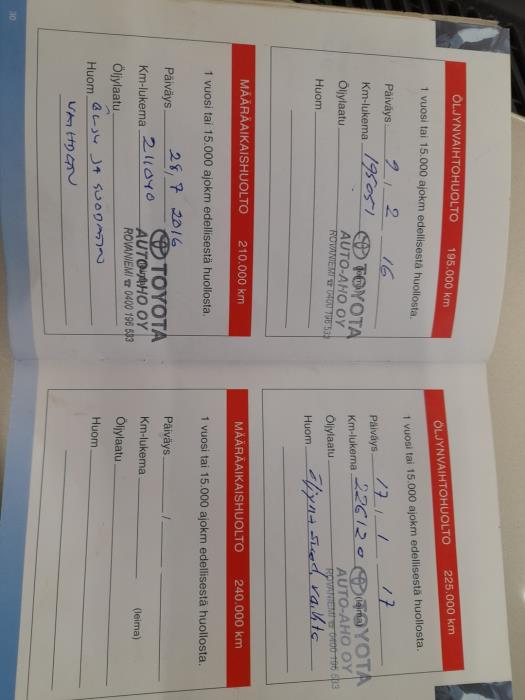 ÖLJYNVAIHTOHUOLTO 195.000 km
1 vuosi tai 15.000 ajokm edellisestä huollosta.
Päiväys 9 / 2 16
Km-lukema 195051
Öljylaatu
Huom
TOYOTA
AUTO-AHO OY
ROVANIEMI ☎ 0400 196 533
MÄÄRÄAIKAISHUOLTO 210.000 km
1 vuosi tai 15.000 ajokm edellisestä huollosta.
Päiväys 28, 7 2016
Km-lukema 211040
Öljylaatu
Huom ÖLJY JA SUODATIN
VAIHDETAAN
TOYOTA
AUTO-AHO OY
ROVANIEMI ☎ 0400 196 533
30
ÖLJYNVAIHTOHUOLTO 225.000 km
1 vuosi tai 15.000 ajokm edellisestä huollosta.
Päiväys 17 / 1 17
Km-lukema 226120 (leima)
Öljylaatu
Huom Öljyn+Suod, vaihto
TOYOTA
AUTO-AHO OY
ROVANIEMI ☎ 0400 196 533
MÄÄRÄAIKAISHUOLTO 240.000 km
1 vuosi tai 15.000 ajokm edellisestä huollosta.
Päiväys /
Km-lukema (leima)
Öljylaatu
Huom